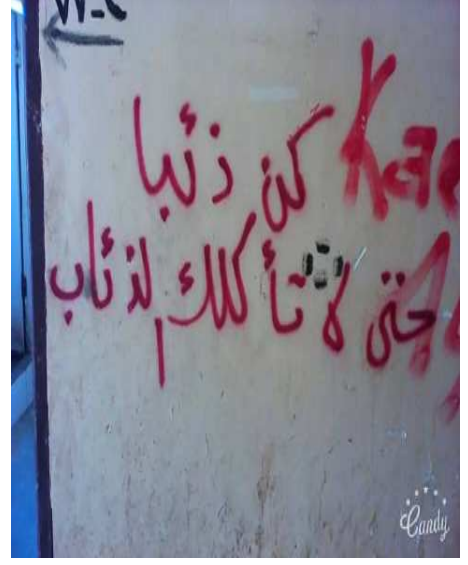 W-C
كن ذئبا
حتى لا تأكلك الذئاب
Candy